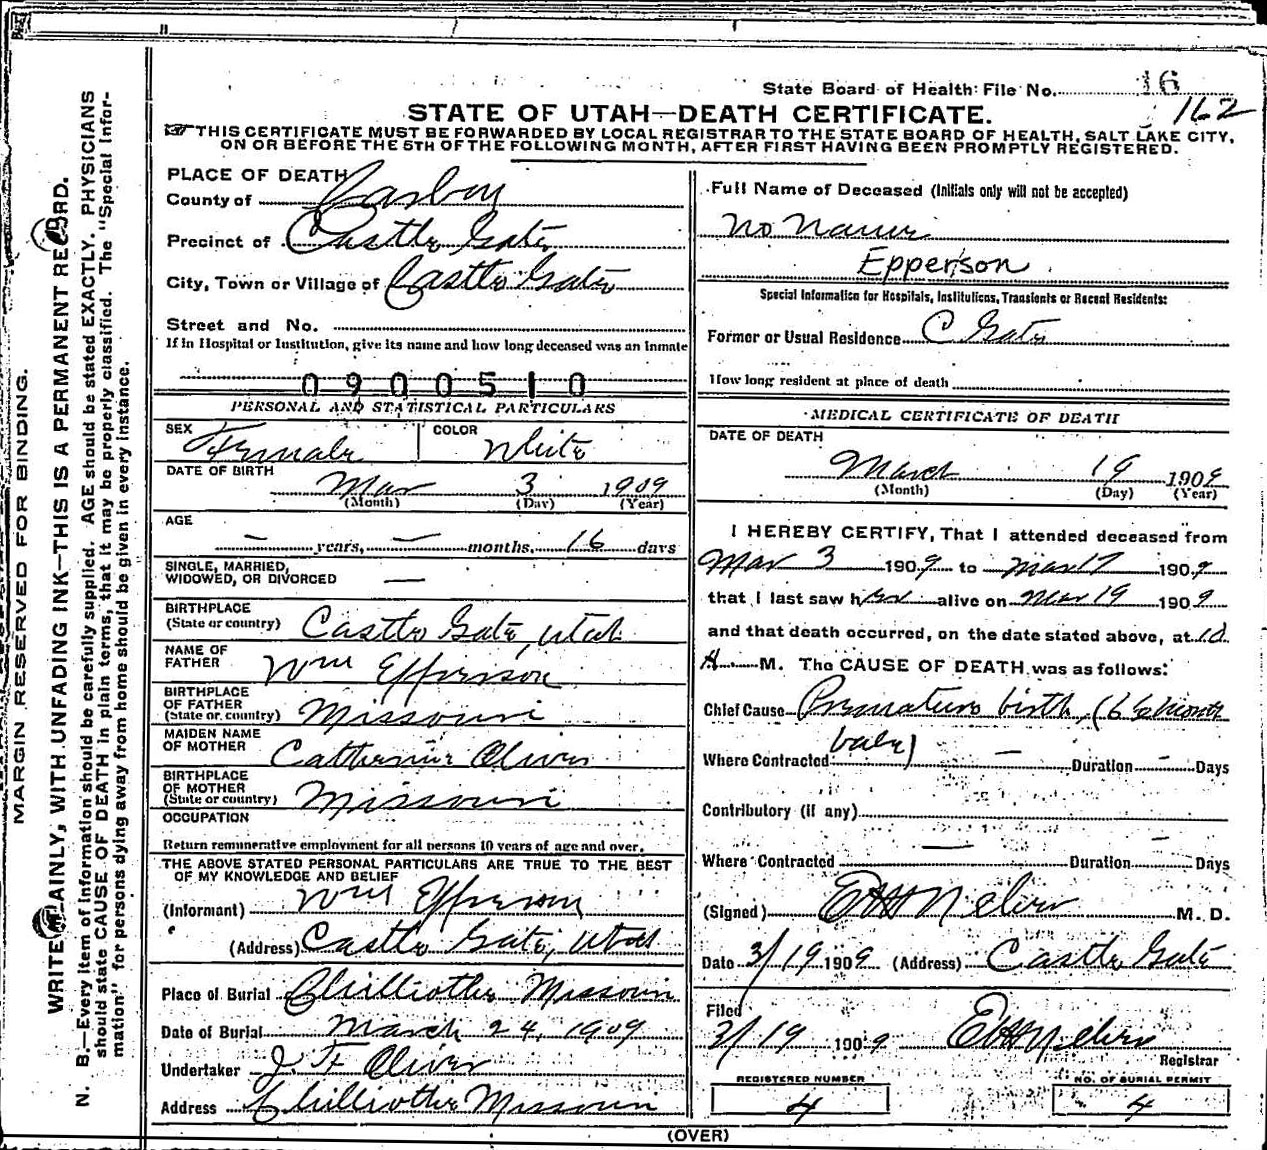 State Board of Health File No. 16
162
STATE OF UTAH—DEATH CERTIFICATE.
☞THIS CERTIFICATE MUST BE FORWARDED BY LOCAL REGISTRAR TO THE STATE BOARD OF HEALTH, SALT LAKE CITY,
ON OR BEFORE THE 5TH OF THE FOLLOWING MONTH, AFTER FIRST HAVING BEEN PROMPTLY REGISTERED.
MARGIN RESERVED FOR BINDING.
WRITE PLAINLY, WITH UNFADING INK—THIS IS A PERMANENT RECORD.
N. B.—Every item of information should be carefully supplied. AGE should be stated EXACTLY. PHYSICIANS
should state CAUSE OF DEATH in plain terms, that it may be properly classified. The "Special Infor-
mation" for persons dying away from home should be given in every instance.
PLACE OF DEATH
County of Carbon
Precinct of Castle Gate
City, Town or Village of Castle Gate
Street and No.
If in Hospital or Institution, give its name and how long deceased was an inmate
0900510
PERSONAL AND STATISTICAL PARTICULARS
SEX Female COLOR White
DATE OF BIRTH
Mar 3 1909
(Month) (Day) (Year)
AGE
— years, — months, 16 days
SINGLE, MARRIED,
WIDOWED, OR DIVORCED —
BIRTHPLACE
(State or country) Castle Gate, Utah
NAME OF
FATHER Wm Epperson
BIRTHPLACE
OF FATHER
(State or country) Missouri
MAIDEN NAME
OF MOTHER Catherine Oliver
BIRTHPLACE
OF MOTHER
(State or country) Missouri
OCCUPATION
Return remunerative employment for all persons 10 years of age and over.
THE ABOVE STATED PERSONAL PARTICULARS ARE TRUE TO THE BEST
OF MY KNOWLEDGE AND BELIEF
(Informant) Wm Epperson
(Address) Castle Gate, Utah
Place of Burial Chillicothe Missouri
Date of Burial March 24, 1909
Undertaker J. F. Oliver
Address Chillicothe Missouri
Full Name of Deceased (Initials only will not be accepted)
No Name
Epperson
Special Information for Hospitals, Institutions, Transients or Recent Residents:
Former or Usual Residence C Gate
How long resident at place of death
MEDICAL CERTIFICATE OF DEATH
DATE OF DEATH
March 19 1909
(Month) (Day) (Year)
I HEREBY CERTIFY, That I attended deceased from
Mar 3 1909 to Mar 17 1909
that I last saw her alive on Mar 19 1909
and that death occurred, on the date stated above, at 10
A M. The CAUSE OF DEATH was as follows:
Chief Cause Premature birth, (6½ month
baby)
Where Contracted — Duration — Days
Contributory (if any)
Where Contracted — Duration — Days
(Signed) M. D.
Date 3/19 1909 (Address) Castle Gate
Filed
3/19 1909
Registrar
REGISTERED NUMBER
4
NO. OF BURIAL PERMIT
4
(OVER)